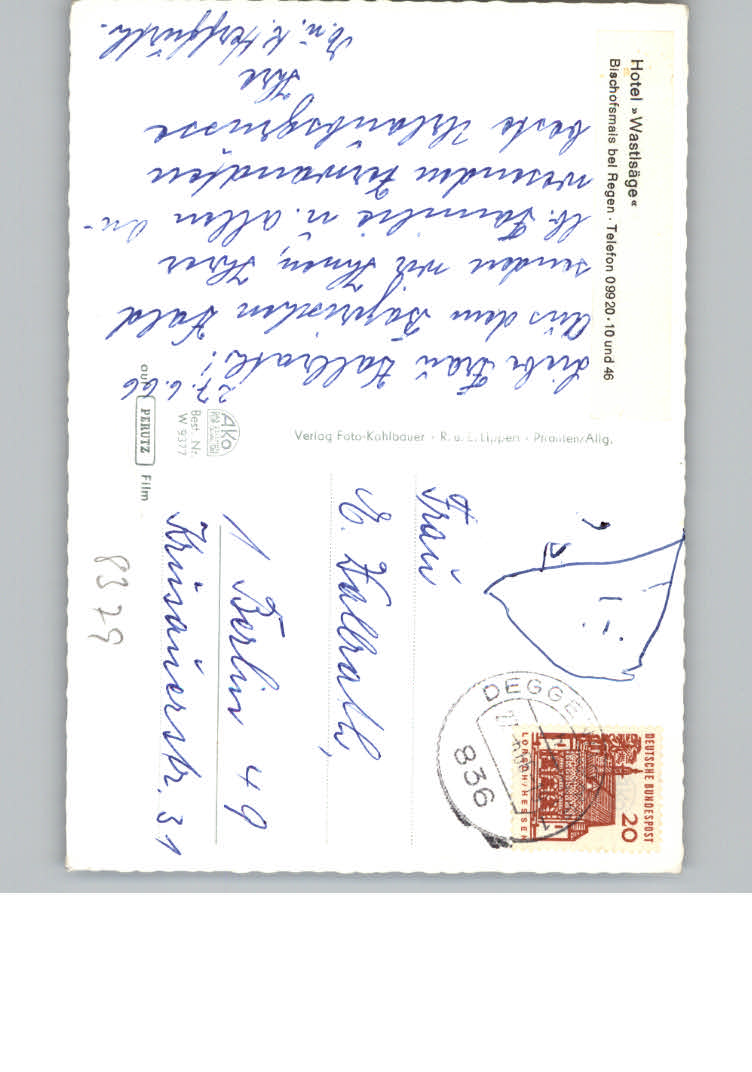 Hotel »Wastlsäge«
Bischofsmais bei Regen · Telefon 09920 · 10 und 46
27.6.66
Liebe Frau Vallrath!
Aus dem Bayrischen Wald
senden wir Ihnen, Ihrer
lb. Familie u. allen An-
wesenden Verwandten
beste Urlaubsgrüsse
Ihre
Verlag Foto-Kohlbauer · R. u. E. Lippert · Pfronten/Allg.
AKO
Best. Nr.
W 9377
PERUTZ Film
DEUTSCHE BUNDESPOST
20
LORSCH/HESSEN
DEGGE
836
Frau
E. Vallrath,
1 Berlin 49
Krusauerstr. 31
8329